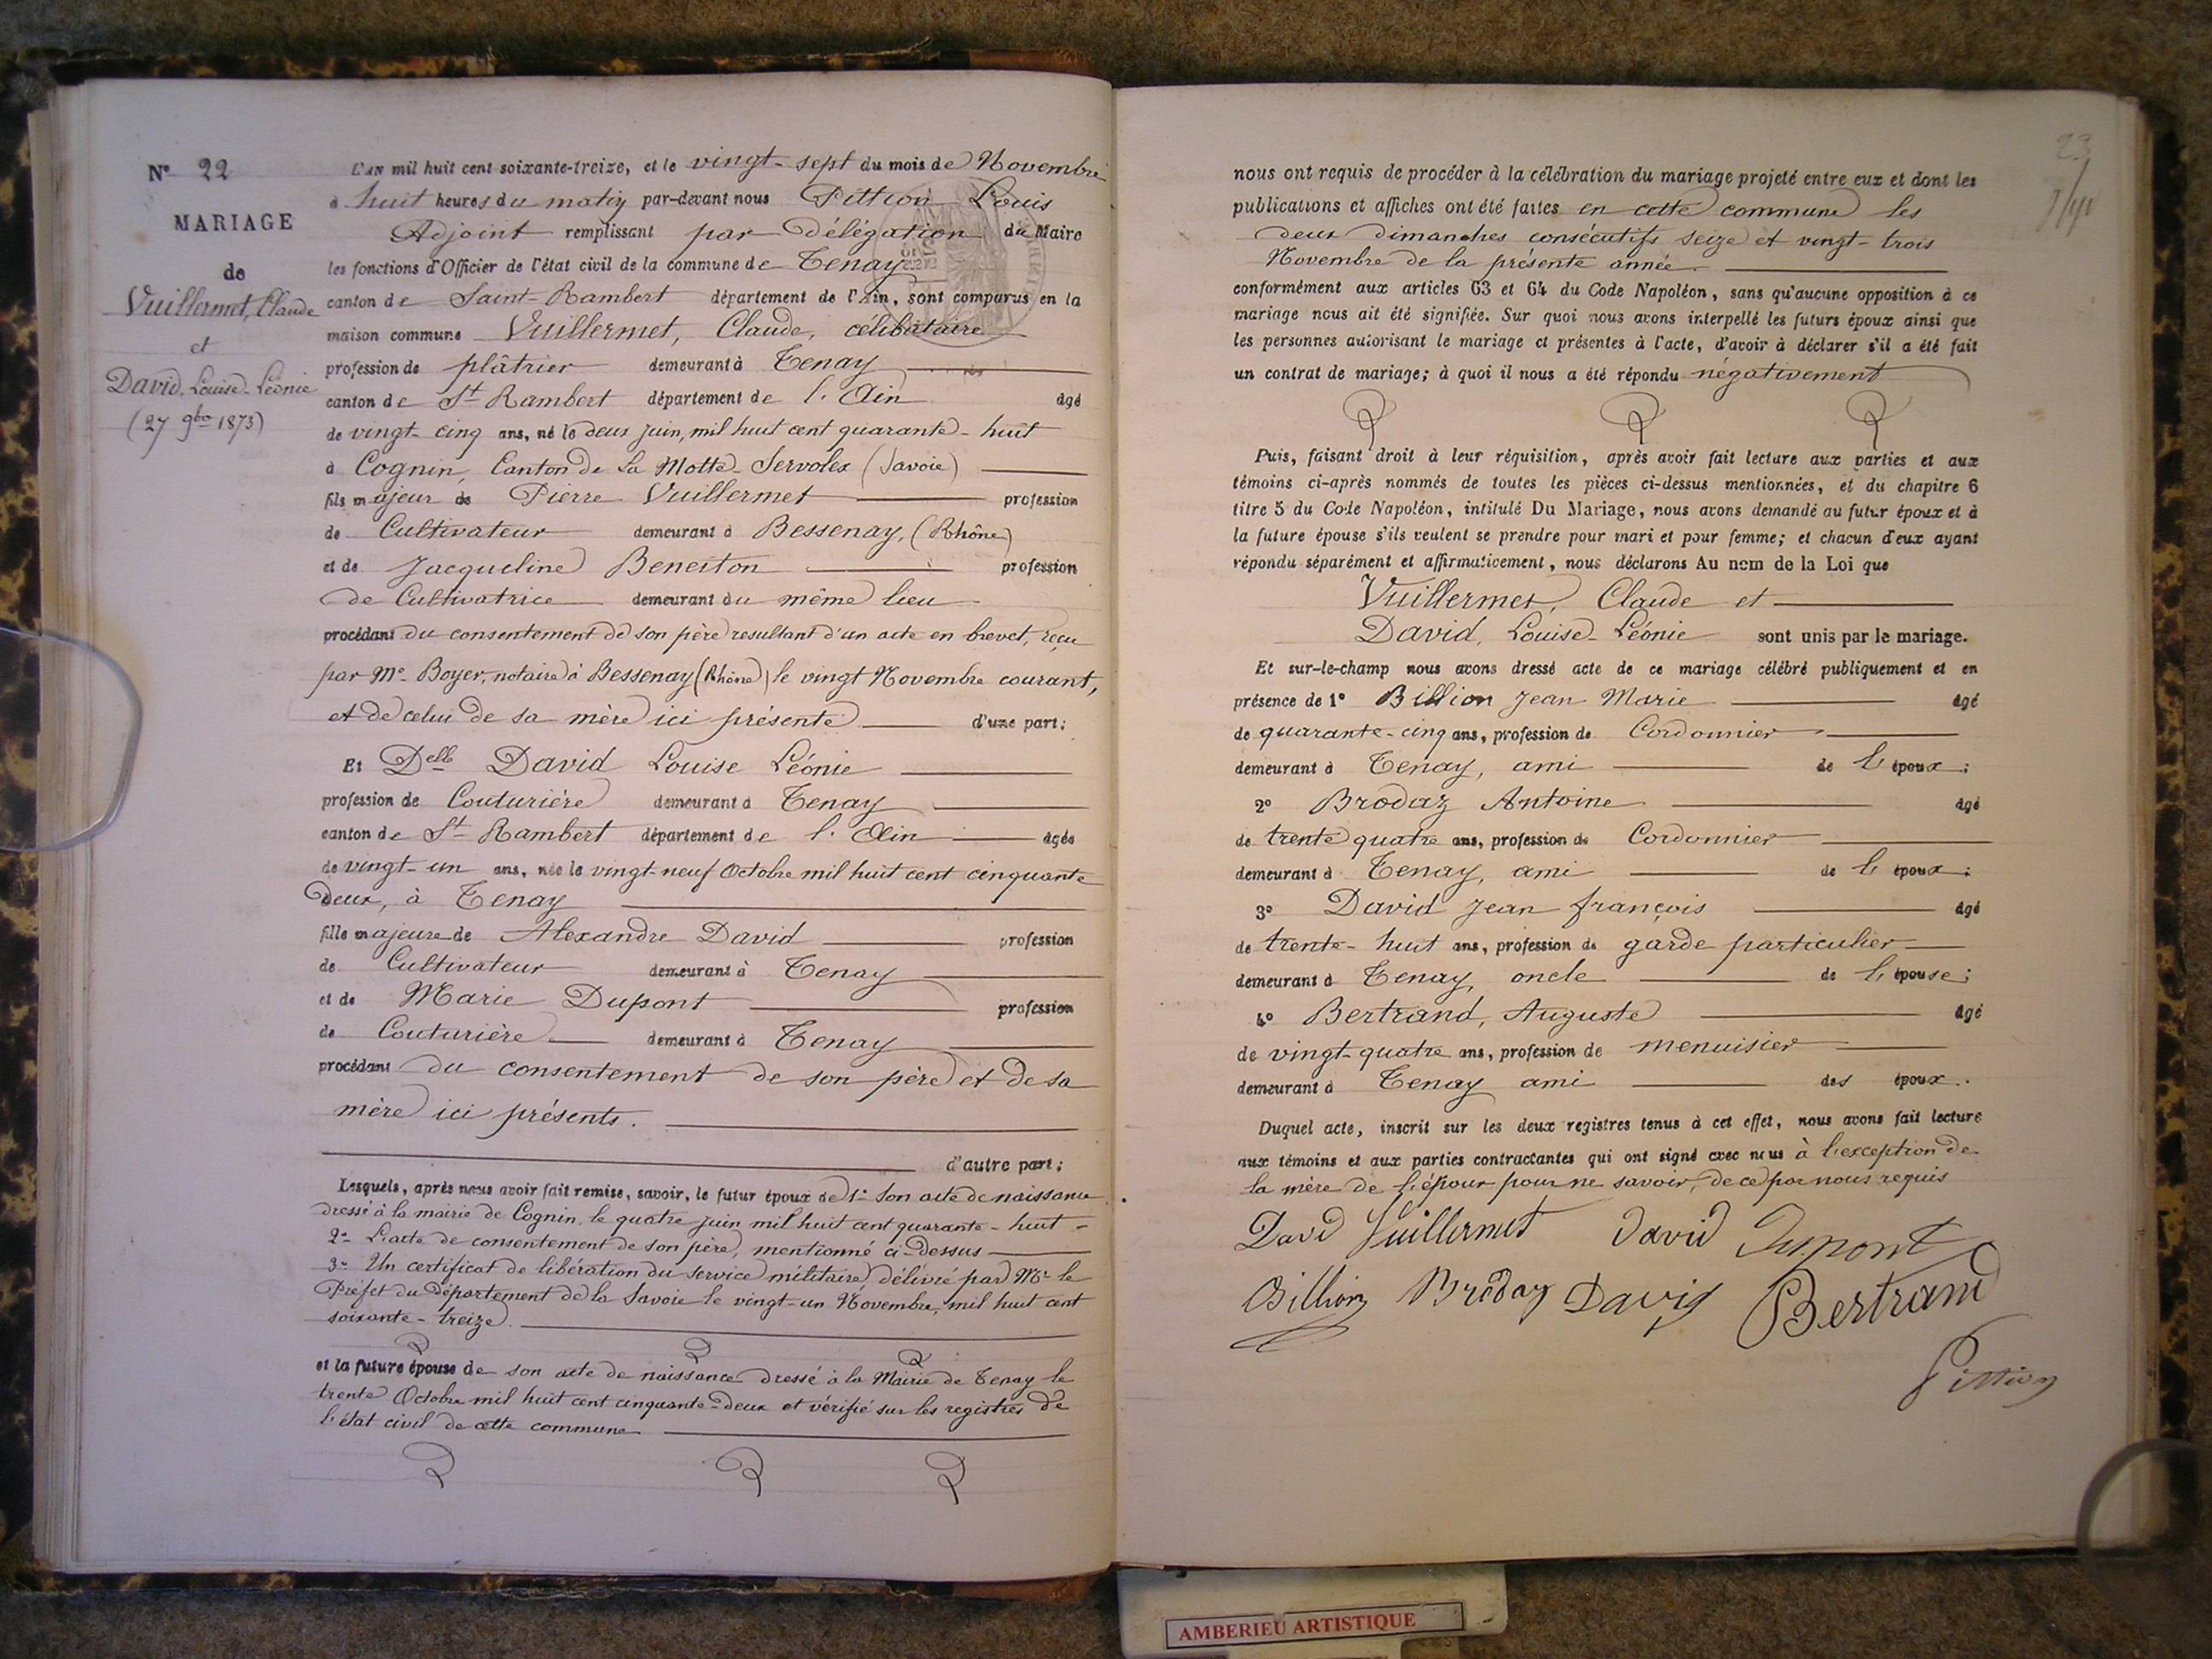 N° 22
MARIAGE
de
Vuillermet, Claude
et
David, Louise-Léonie
(27 9bre 1873)
L'AN mil huit cent soixante-treize, et le vingt-sept du mois de Novembre
à huit heures du matin par-devant nous Pittion Louis
Adjoint remplissant par délégation du Maire
les fonctions d'Officier de l'état civil de la commune de Tenay
canton de Saint-Rambert département de l'Ain, sont comparus en la
maison commune Vuillermet, Claude, célibataire
profession de plâtrier demeurant à Tenay
canton de St Rambert département de l'Ain âgé
de vingt-cinq ans, né le deux juin, mil huit cent quarante-huit
à Cognin, Canton de La Motte-Servolex (Savoie)
fils majeur de Pierre Vuillermet profession
de Cultivateur demeurant à Bessenay, (Rhône)
et de Jacqueline Beneiton profession
de Cultivatrice demeurant du même lieu
procédant du consentement de son père resultant d'un acte en brevet, reçu
par Me Boyer, notaire à Bessenay (Rhône) le vingt Novembre courant,
et de celui de sa mère ici présente d'une part;
Et Delle David Louise Léonie
profession de Couturière demeurant à Tenay
canton de St Rambert département de l'Ain âgée
de vingt-un ans, née le vingt-neuf Octobre mil huit cent cinquante
deux, à Tenay
fille majeure de Alexandre David profession
de Cultivateur demeurant à Tenay
et de Marie Dupont profession
de Couturière demeurant à Tenay
procédant du consentement de son père et de sa
mère ici présents.
d'autre part;
Lesquels, après nous avoir fait remise, savoir, le futur époux de 1° Son acte de naissance
dressé à la mairie de Cognin, le quatre juin mil huit cent quarante-huit -
2° L'acte de consentement de son père, mentionné ci-dessus
3° Un certificat de libération du service militaire, délivré par Mr le
Préfet du département de la Savoie le vingt-un Novembre, mil huit cent
soixante-treize.
et la future épouse de son acte de naissance dressé à la Mairie de Tenay le
trente Octobre mil huit cent cinquante-deux et vérifié sur les registres de
l'état civil de cette commune
23
nous ont requis de procéder à la célébration du mariage projeté entre eux et dont les
publications et affiches ont été faites en cette commune les
deux dimanches consécutifs seize et vingt-trois
Novembre de la présente année.
conformément aux articles 63 et 64 du Code Napoléon, sans qu'aucune opposition à ce
mariage nous ait été signifiée. Sur quoi nous avons interpellé les futurs époux ainsi que
les personnes autorisant le mariage et présentes à l'acte, d'avoir à déclarer s'il a été fait
un contrat de mariage; à quoi il nous a été répondu négativement
Puis, faisant droit à leur réquisition, après avoir fait lecture aux parties et aux
témoins ci-après nommés de toutes les pièces ci-dessus mentionnées, et du chapitre 6
titre 5 du Code Napoléon, intitulé Du Mariage, nous avons demandé au futur époux et à
la future épouse s'ils veulent se prendre pour mari et pour femme; et chacun d'eux ayant
répondu séparément et affirmativement, nous déclarons Au nom de la Loi que
Vuillermet, Claude et
David, Louise-Léonie sont unis par le mariage.
Et sur-le-champ nous avons dressé acte de ce mariage célébré publiquement et en
présence de 1° Billion Jean Marie âgé
de quarante-cinq ans, profession de Cordonnier
demeurant à Tenay, ami de l'époux;
2° Brodaz Antoine âgé
de trente quatre ans, profession de Cordonnier
demeurant à Tenay, ami de l'époux;
3° David Jean françois âgé
de trente-huit ans, profession de garde particulier
demeurant à Tenay, oncle de l'épouse;
4° Bertrand, Auguste âgé
de vingt-quatre ans, profession de menuisier
demeurant à Tenay ami des époux.
Duquel acte, inscrit sur les deux registres tenus à cet effet, nous avons fait lecture
aux témoins et aux parties contractantes qui ont signé avec nous à l'exception de
la mère de l'époux pour ne savoir, de ce par nous requis
David Vuillermet David Dupont
Billion Brodaz David Bertrand
Pittion
AMBERIEU ARTISTIQUE